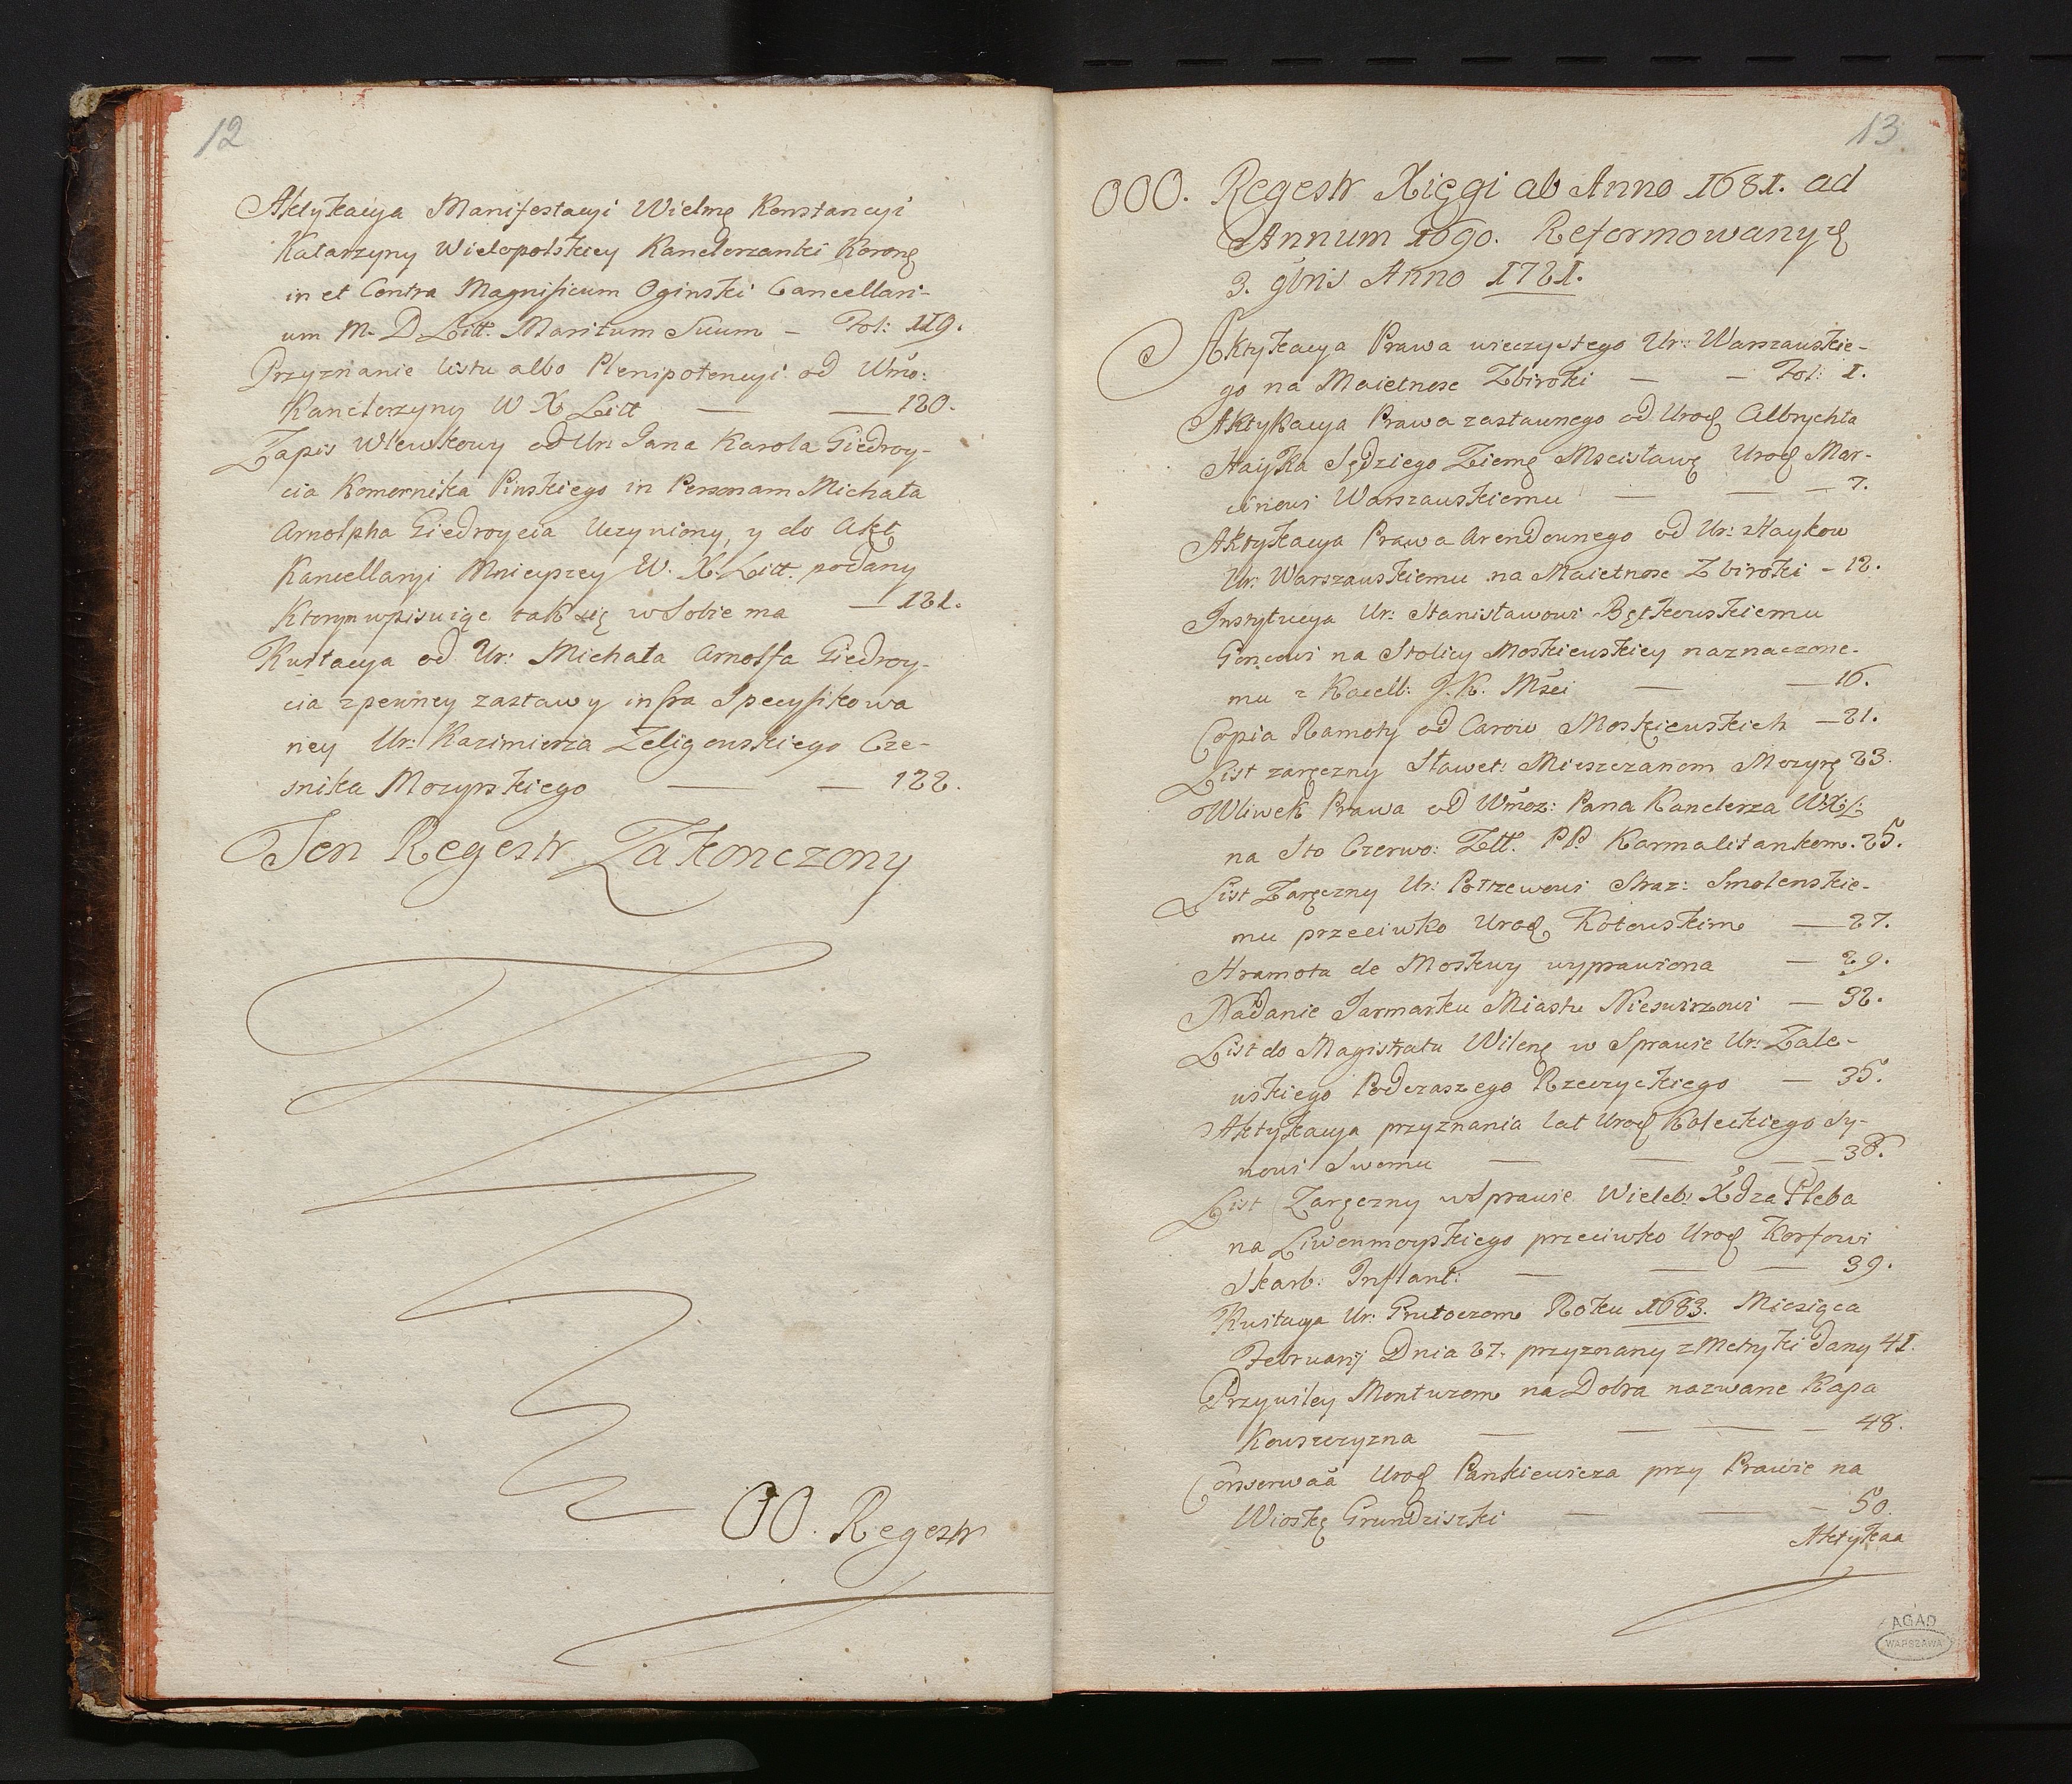 12
Aktykacya Manifestacyi Wielmę Konstancyi
Katarzyny Wielopolskiey Kanclerzanki Koronę
in et Contra Magnificum Oginski Cancellari-
um M. D. Litt. Maritum Suum – Fol: 119.
Przyznanie listu albo Plenipotencyi od Wmo:
Kanclerzyny W X Litt — — 120.
Zapis Wlewkowy od Ur: Jana Karola Giedroy-
cia Komornika Pinskiego in Personam Michała
Arnolpha Giedroycia Uczyniony, y do Akt
Kancellaryi Mnieyszey W. X. Litt. podany
Ktory wpisuiąc tak się w Sobie ma — 121.
Kwitacya od Ur: Michała Arnolfa Giedroy-
cia z pewney zastawy infra Specyfikowa
ney Ur: Kazimierza Zeligowskiego Cze-
snika Mozyrskiego — — 122.
Ten Regestr Zakonczony
OO. Regestr
13
OOO. Regestr Xięgi ab Anno 1681. ad
Annum 1690. Reformowany
3. 9bris Anno 1721.
Aktykacya Prawa wieczystego Ur: Warszawskie-
go na Maietnosc Zbiroki — – Fol: 1.
Aktykacya Prawa zastawnego od Urod Albrychta
Hayka Sędziego Ziemę Mscisławę Urod Mar-
cinowi Warszawskiemu — — — 7.
Aktykacya Prawa Arendownego od Ur: Haykow
Ur: Warszawskiemu na Maietnosc Zbiroki – 12.
Instytucya Ur: Stanisławowi Bętkowskiemu
Goncowi na Stolicy Moskiewskiey naznaczone-
mu z Kacell: J. K. Msci — — 16.
Copia Ramoty od Carow Moskiewskich — 21.
List zaręczny Sławet: Mieszczanom Mozyrę 23.
Wliwek Prawa od Wmoz: Pana Kanclerza W.X.L:
na Sto Czerwo: Złł. PP. Karmalitankom. 25.
List Zaręczny Ur: Potrzewowi Straz: Smolenskie-
mu przeciwko Urod Kotowskim — 27.
Hramota de Moskwy wyprawiona — 29.
Nadanie Jarmarku Miastu Nieswizowi — 32.
List do Magistratu Wilenę w Sprawie Ur: Zale-
wskiego Podczaszego Rzeczyckiego — 35.
Aktykacya przyznania lat Urod Koleckiego Sy-
nowi Swemu — — — 38.
List Zaręczny w Sprawie Wieleb: Xdza Pleba
na Liwenmoyskiego przeciwko Urod Korfowi
Skarb: Inflant: — — — 39.
Kwitacya Ur: Prutoczom Roku 1683. Miesiąca
Februarij Dnia 27. przyznany z Metryki dany 41.
Przywiley Montwzom na Dobra nazwane Kapa
Kowszczyzna — — — — 48.
Conserwaa Urod Pankiewicza przy Prawie na
Wioskę Grundziszki — — – 50.
Aktykaa
AGAD
WARSZAWA